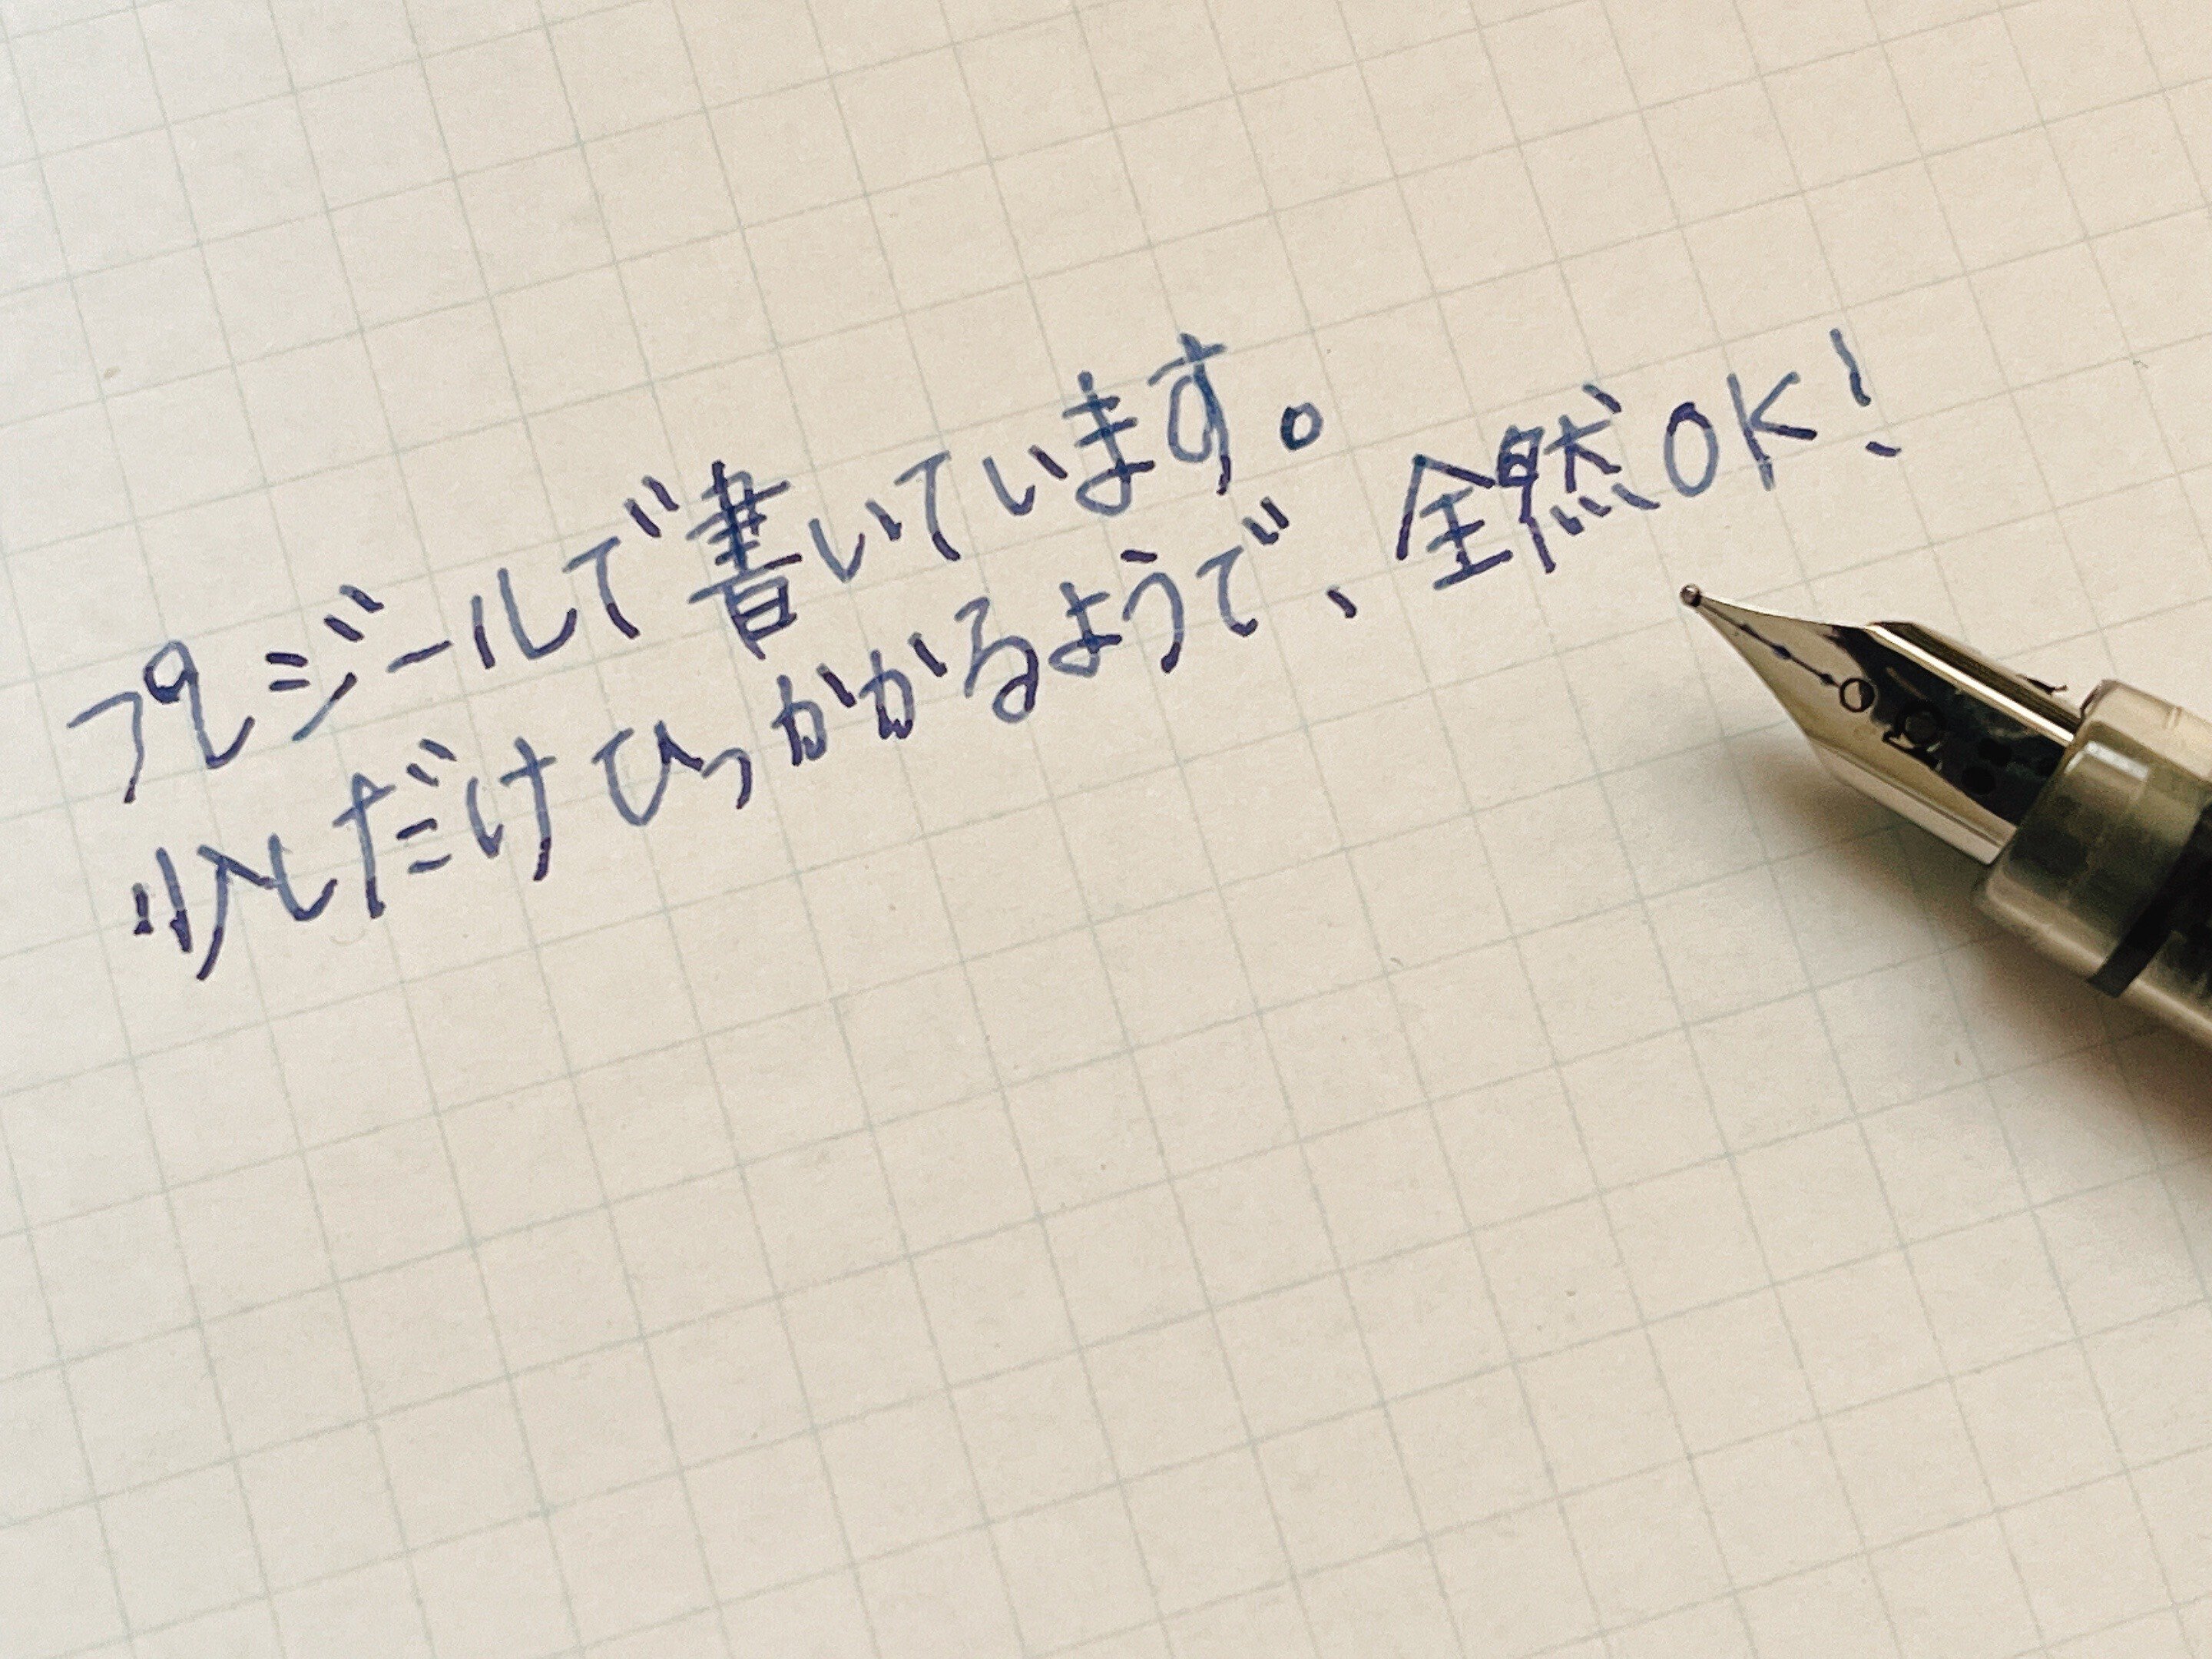 プレジールで書いています。
少しだけひっかかるようで、全然OK!